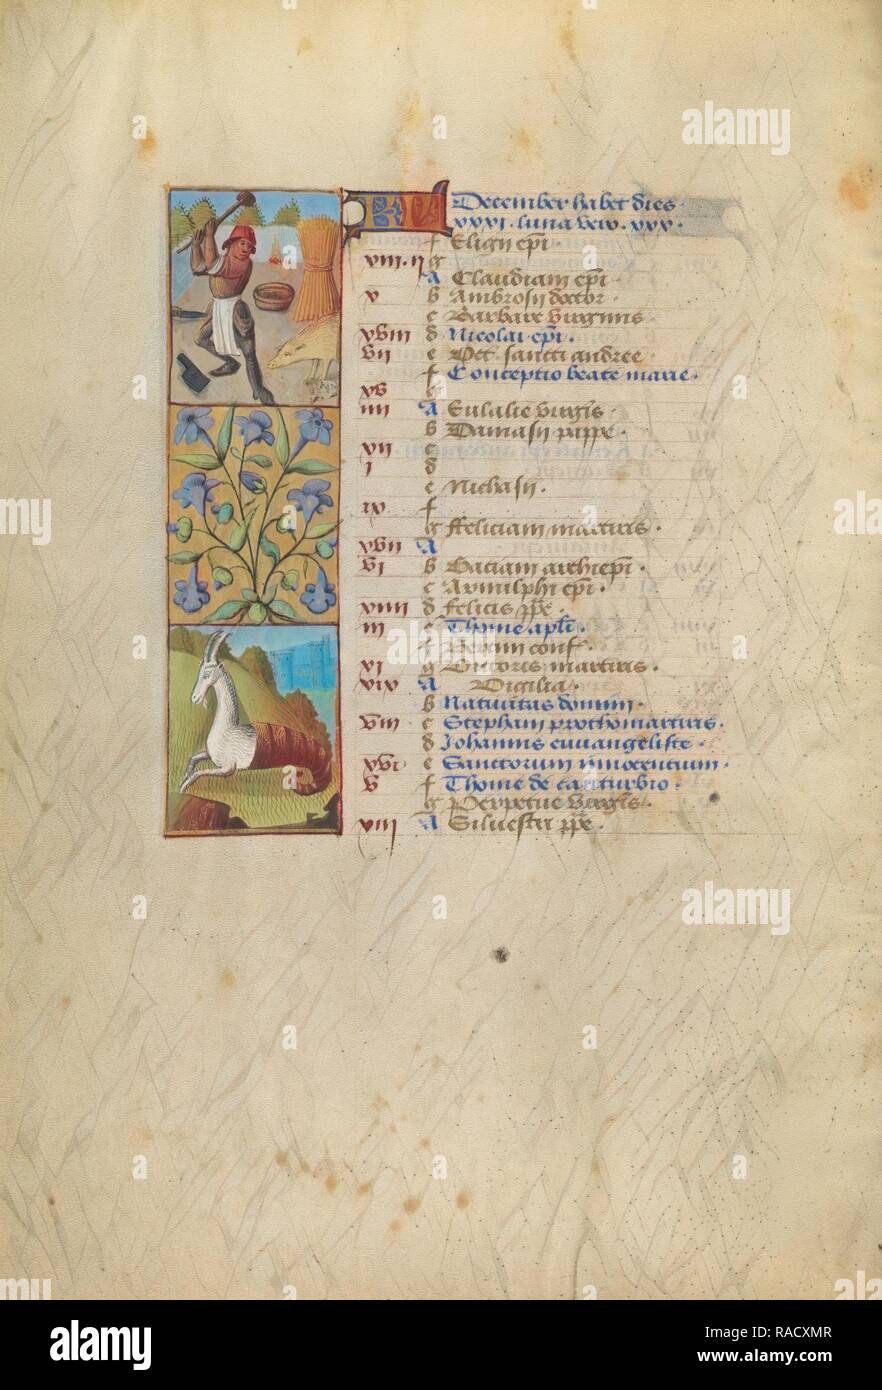 December habet dies
xxxi. luna vero. xxx.
f Eligii epi.
viii. ii g
A Claudiani epi.
v b Ambrosii doctor.
c Barbare virginis
xviii d Nicolai epi.
vii e Oct. sancti andree
f Conceptio beate marie.
xv g
iiii A Eulalie virgis.
b Damasii pappe.
vii c
i d
e Nichasii.
ix f
g ffeliciani martiris.
xvii A
vi b Gaciani archiepi.
c Arnulphi epi.
xiiii d felicis ppe.
iii e Thome apli.
f conf.
xi g Victoris martiris.
xix A Vigilia.
b Nativitas domini.
viii c Stephani prothomartiris.
d Johannis euvangeliste.
xvi e Sanctorum innocentium.
v f Thome de canturbio.
g Perpetue virgis.
xiii A Silvester ppe.
alamy
alamy
alamy
Image ID: RACXMR
www.alamy.com